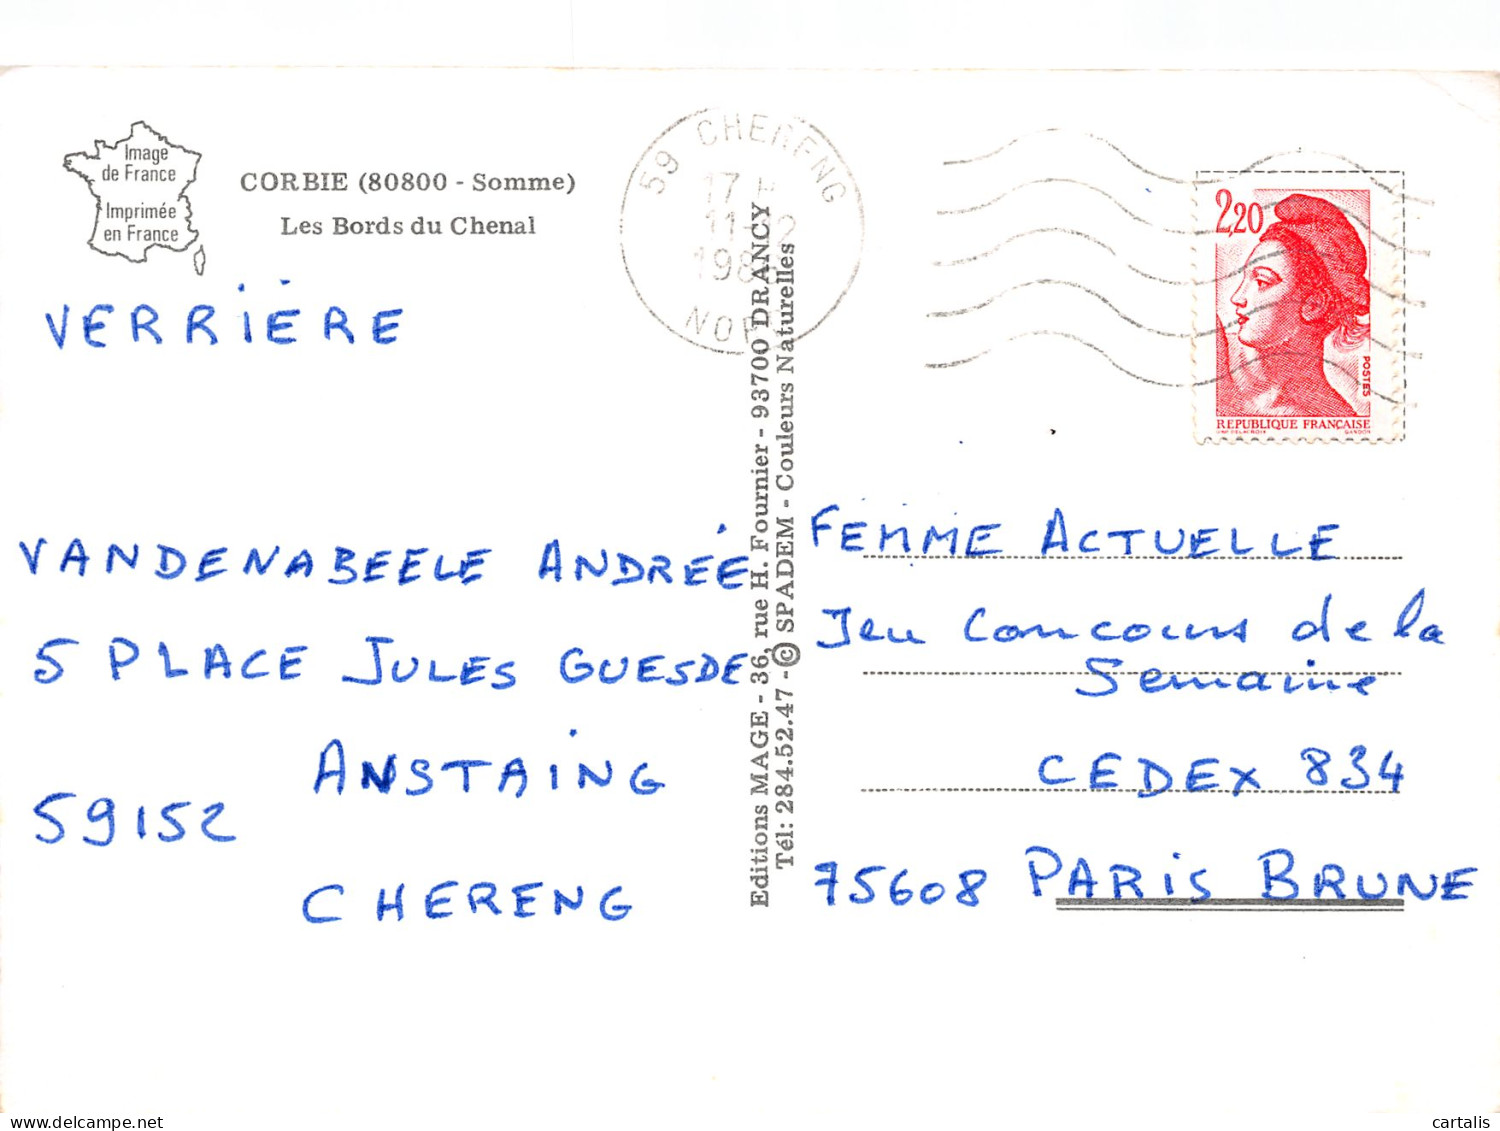 Image
de France
Imprimée
en France
CORBIE (80800 - Somme)
Les Bords du Chenal
VERRIÈRE
VANDENABEELE ANDRÉE
5 PLACE JULES GUESDE
ANSTAING
59152
CHERENG
Editions MAGE - 36, rue H. Fournier - 93700 DRANCY
Tél: 284.52.47 - © SPADEM - Couleurs Naturelles
59 CHERENG
17 H
11-12
NORD
2,20
POSTES
REPUBLIQUE FRANÇAISE
GANDON
FEMME ACTUELLE
Jeu Concours de la
Semaine
CEDEX 834
75608 PARIS BRUNE
delcampe.net
cartalis